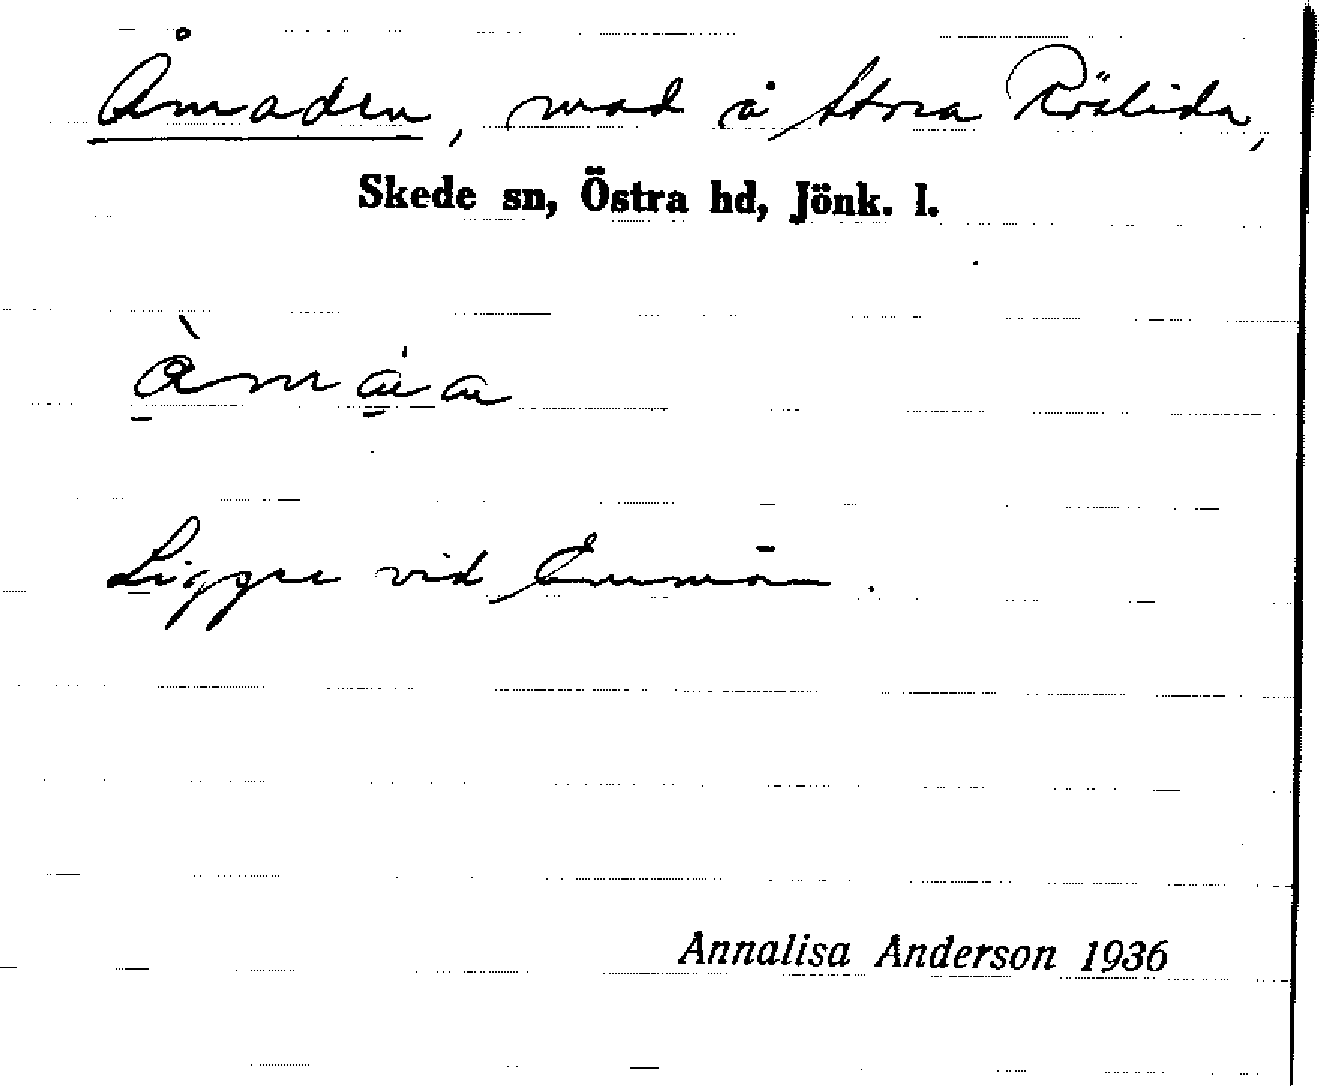 Åmaden, mad å Stora Röslida,
Skede sn, Östra hd, Jönk. l.
Ligger vid Emån.
Annalisa Anderson 1936